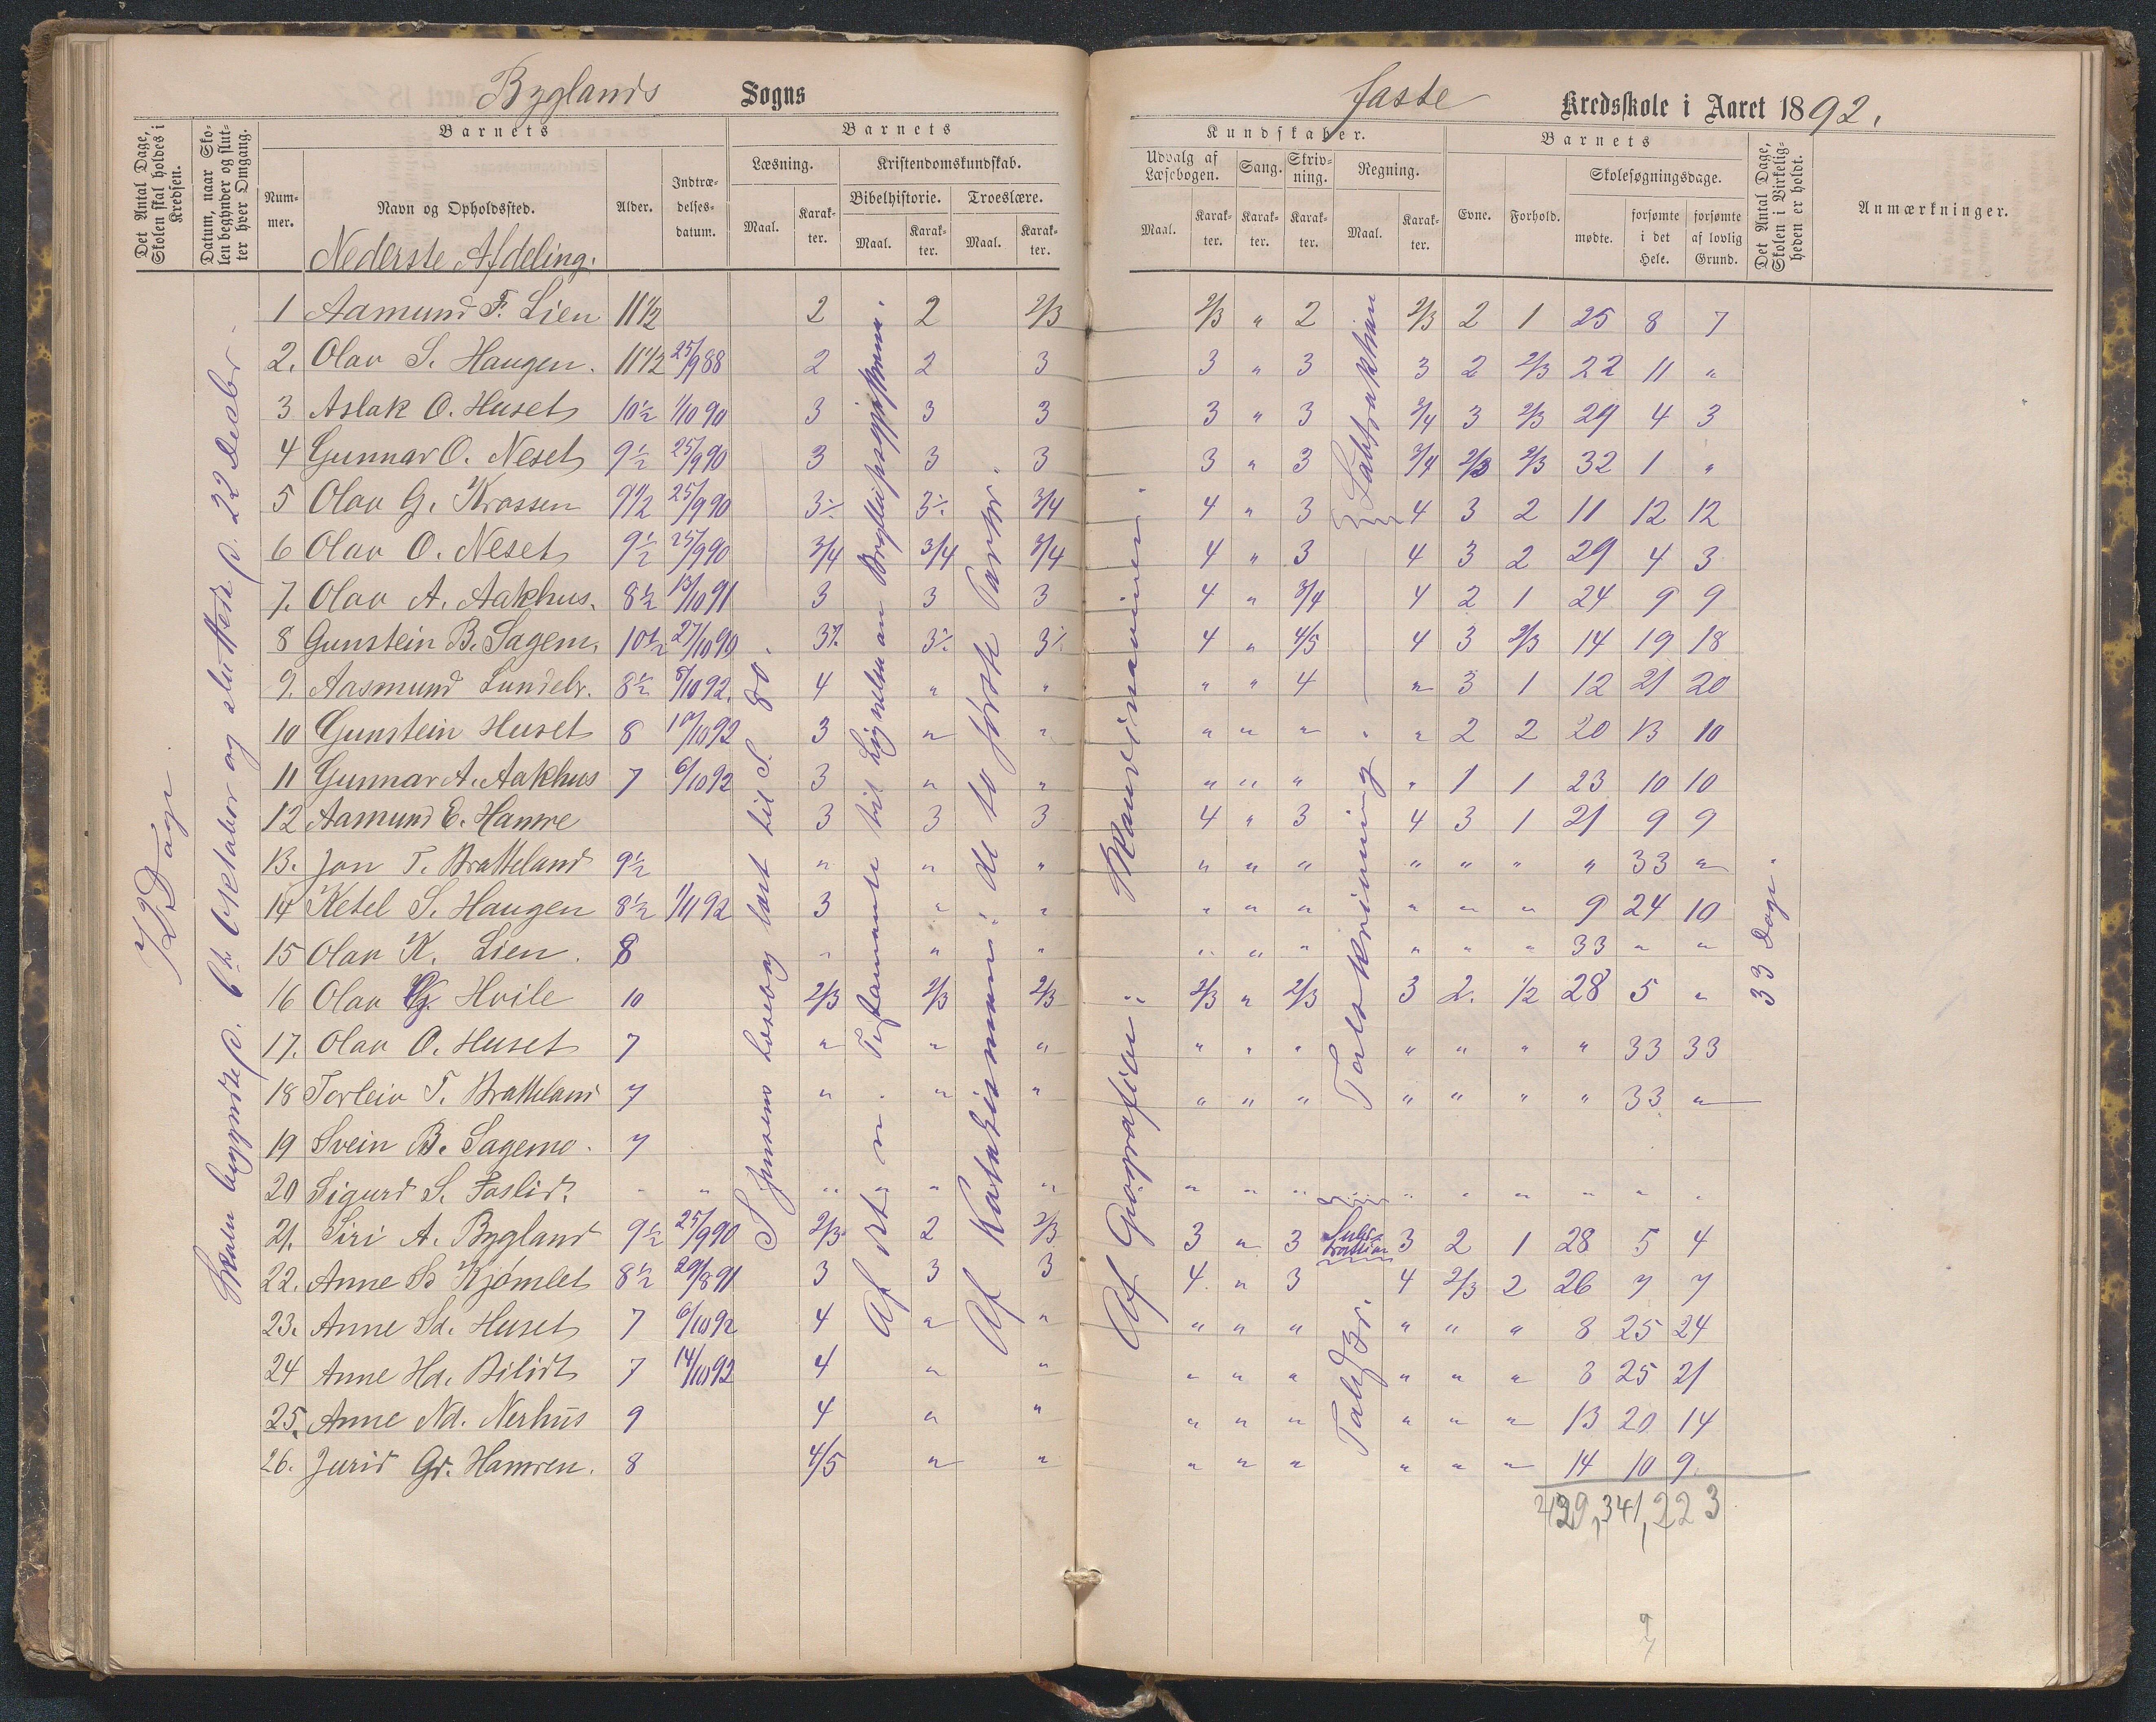 Byglands Sogns
faste Kredsskole i Aaret 1892.
Det Antal Dage, Skolen skal holdes i Kredsen.
Datum, naar Skolen begynder og slutter hver Omgang.
Barnets
Nummer.
Navn og Opholdssted.
Nederste Afdeling.
Alder.
Indtrædelsesdatum.
Barnets
Læsning.
Maal. Karakter.
Kristendomskundskab.
Bibelhistorie. Troeslære.
Maal. Karakter. Maal. Karakter.
Kundskaber.
Udvalg af Læsebogen. Sang. Skrivning. Regning.
Maal. Karakter. Karakter. Karakter. Maal. Karakter.
Barnets
Evne. Forhold.
Skolesøgningsdage.
mødte. forsømte i det Hele. forsømte af lovlig Grund.
Det Antal Dage, Skolen i Virkeligheden er holdt.
Anmærkninger.
1 Aamund F. Lien 11½ 2 2 2/3 2/3 " 2 2/3 2 1 25 8 7
2. Olav S. Haugen. 11½ 25/9 88 2 2 3 3 " 3 3 2 2/3 22 11 "
3 Aslak O. Huset 10½ 1/10 90 3 3 3 3 " 3 3/4 3 2/3 29 4 3
4 Gunnar O. Neset 9½ 25/9 90 3 3 3 3 " 3 3/4 2/3 2/3 32 1 "
5 Olav G. Krossen 9½ 25/9 90 3÷ 3÷ 3/4 4 " 3 4 3 2 11 12 12
6 Olav O. Neset 9½ 25/9 90 3/4 3/4 3/4 4 " 3 4 3 2 29 4 3
7. Olav A. Aakhus. 8½ 13/10 91 3 3 3 4 " 3/4 4 2 1 24 9 9
8 Gunstein B. Sagem. 10½ 27/10 90 3÷ 3÷ 3÷ 4 " 4/5 4 3 2/3 14 19 18
9. Aasmund Lundebr. 8½ 8/10 92. 4 " " " " 4 " 3 1 12 21 20
10 Gunstein Huset 8 10/10 92 3 " " " " " " " 2 2 20 13 10
11 Gunnar A. Aakhus 7 6/10 92 3 " " " " " " 1 1 23 10 10
12 Aamund E. Hamre 3 3 3 4 " 3 4 3 1 21 9 9
13. Jon T. Bratteland 9½ " " " " " " " " " " 33 "
14 Ketel S. Haugen 8½ 1/11 92 3 " " " " " " " " 9 24 10
15 Olav K. Lien. 8 " " " " " " " " " 33 " "
16 Olav G. Hvile 10 2/3 2/3 2/3 " 2/3 " 2/3 3 2. 1/2 28 5 "
17. Olav O. Huset 7 " " " " " " " " " " 33 33
18 Torleiv T. Bratteland 7 " " " " " " " " " " 33 "
19 Svein B. Sagemo. 7
20 Sigurd S. Foslid. " " " " " " " " " " " " " " " "
21. Siri A. Bygland 9½ 25/9 90 2/3 2 2/3 3 " 3 Subtraktion 3 2 1 28 5 4
22. Anne Kjømlet 8½ 29/8 91 3 3 3 4. " 3 4 2/3 2 26 7 7
23. Anne Sd. Huset 7 6/10 92 4 " " " " " " " " 8 25 24
24 Anne Hd. Bilidt 7 14/10 92 4 " " " " " " " " 8 25 21
25. Anne Nd. Nerhus 9 4 " " " " " " " " 13 20 14
26. Jurid Gr. Hamren. 8 4/5 " " " " " " " " 14 10 9
429, 341, 223
9
72 Dage
Skolen begyndte p. 6te Oktober og sluttede p. 22 Decbr.
Jensens Læsebog læst til S. 80.
Af det n. Testamente til Lignelsen om Bryllupsgjæsterne.
Af Katekismen: de to første Parter.
Af Geografien: Skandinavien.
Subtraktion
Talskrivning
Talskr.
33 Dage.